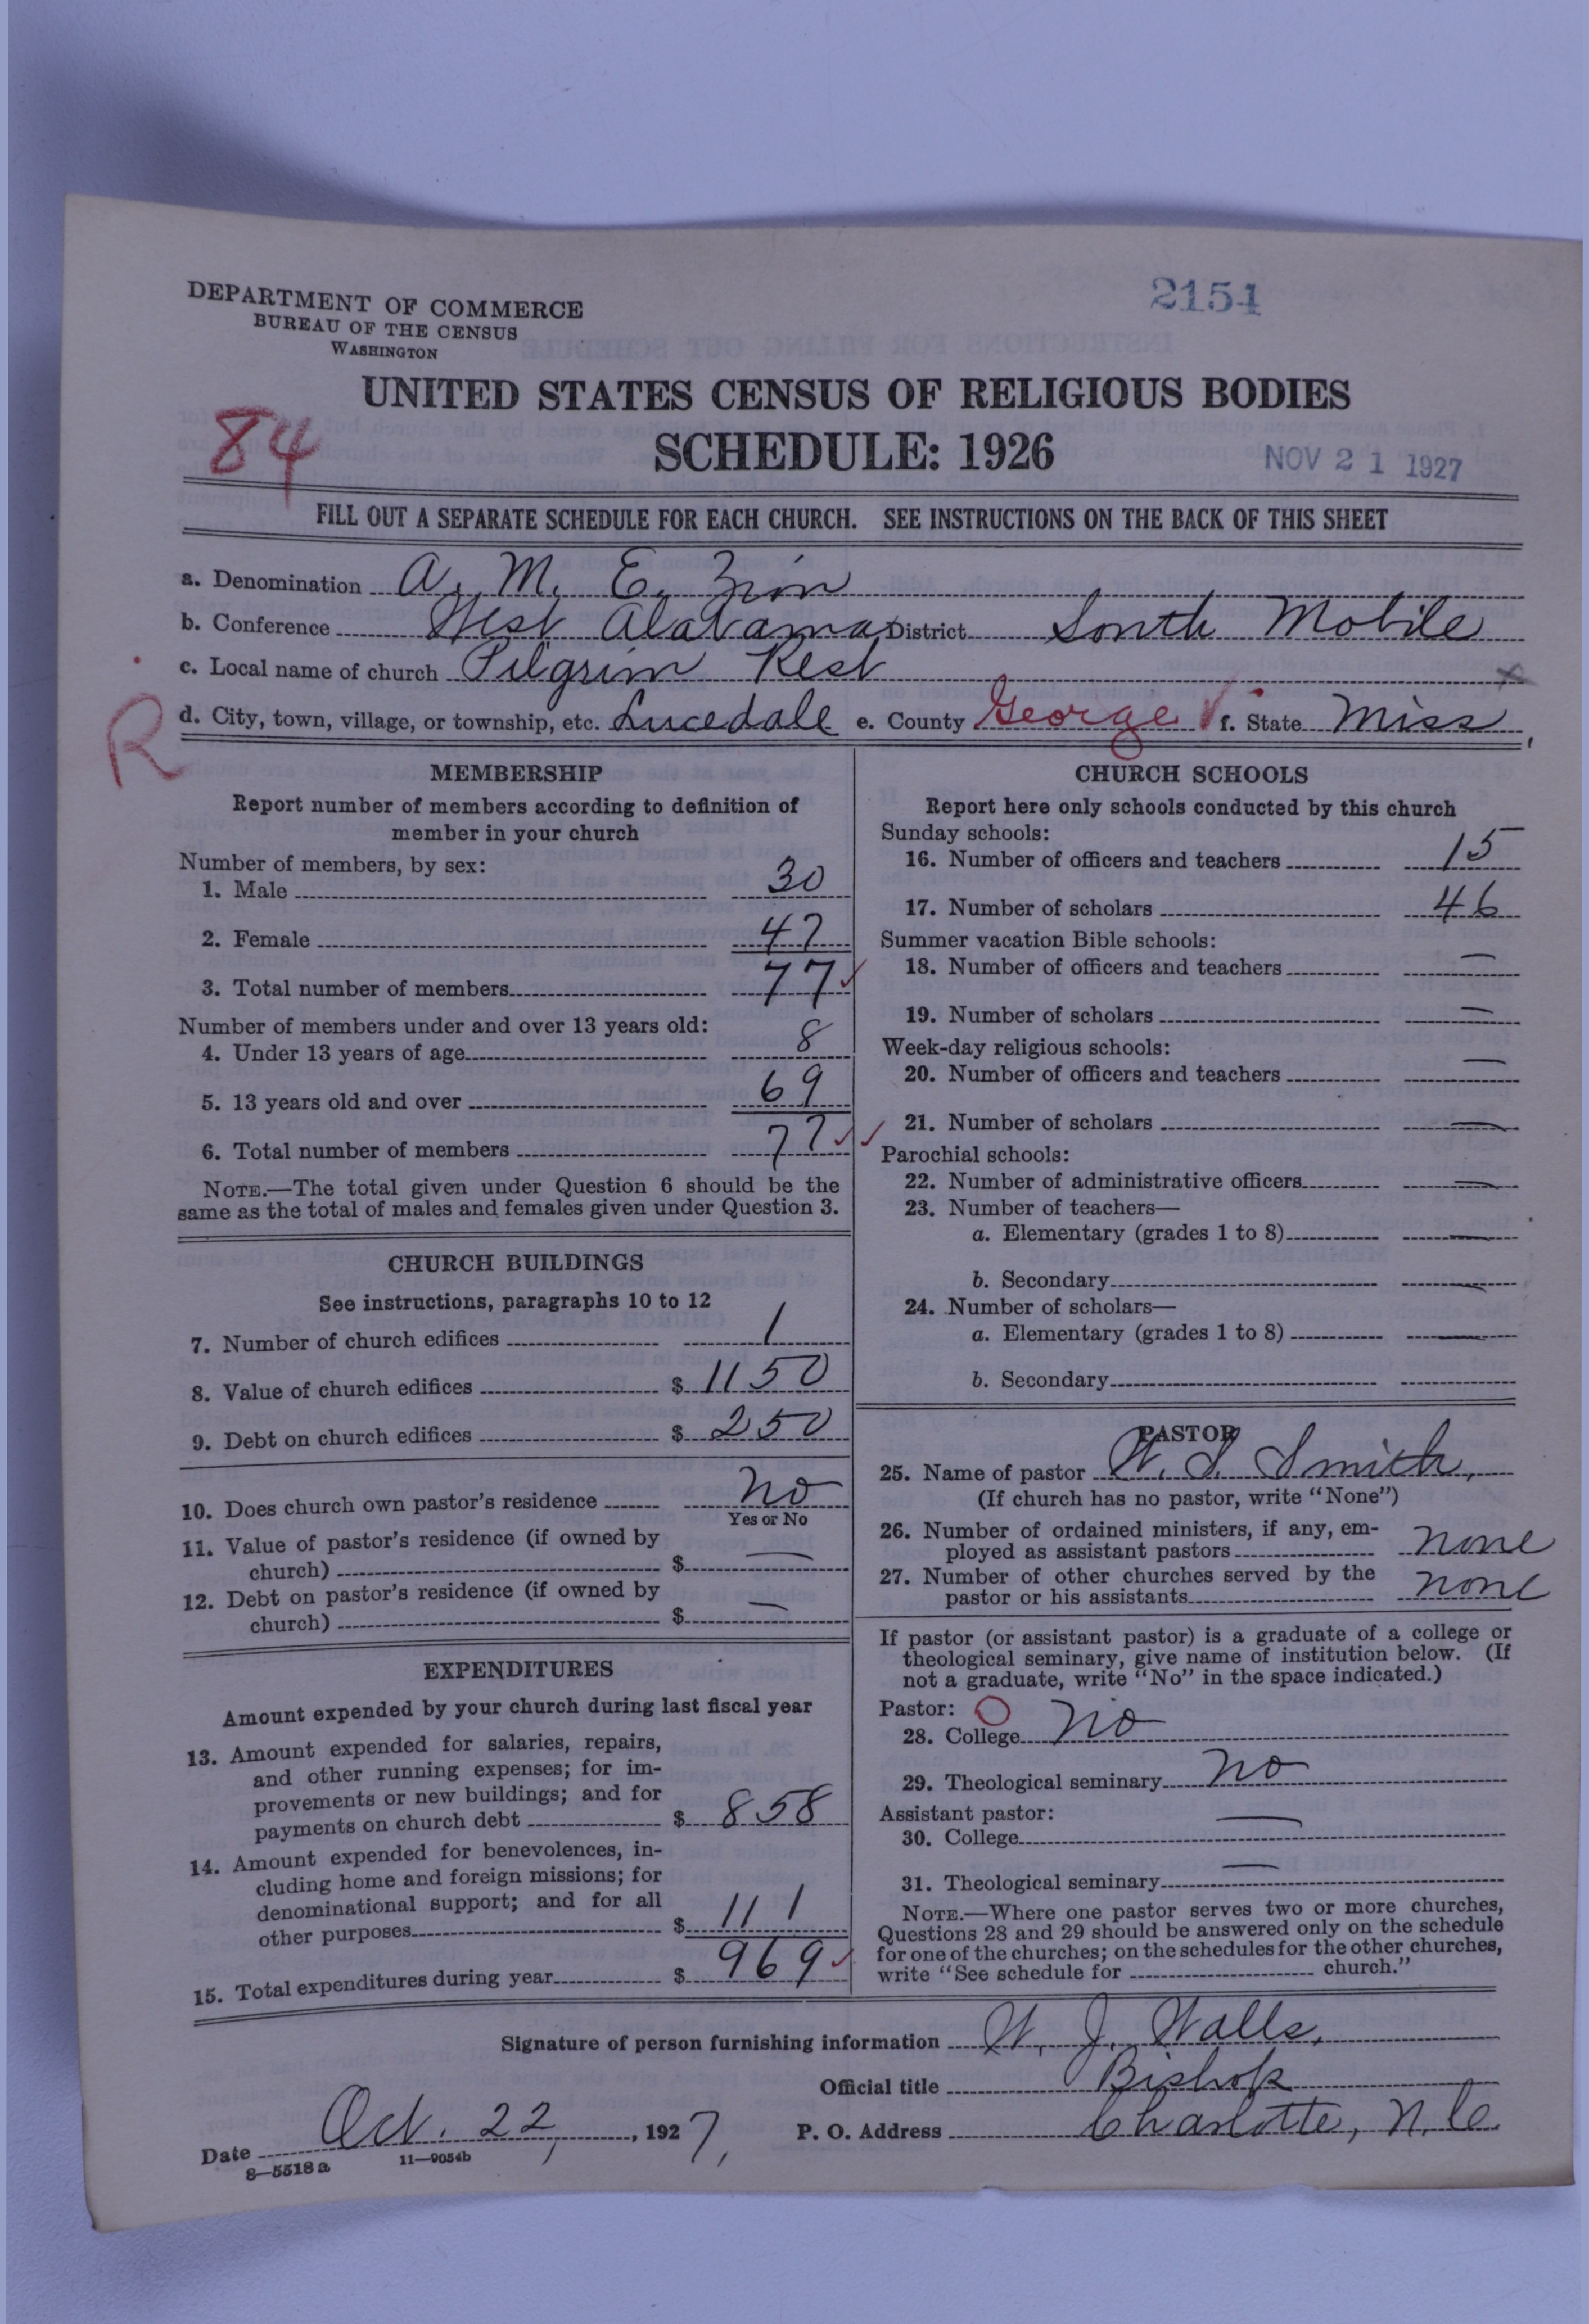 2154
DEPARTMENT OF COMMERCE
BUREAU OF THE CENSUS
WASHINGTON
UNITED STATES CENSUS OF RELIGIOUS BODIES
84
SCHEDULE: 1926
NOV 21 1927
FILL OUT A SEPARATE SCHEDULE FOR EACH CHURCH. SEE INSTRUCTIONS ON THE BACK OF THIS SHEET
a. Denomination A. M. E. Zion
b. Conference West Alabama District South Mobile
c. Local name of church Pilgrim Rest
R
d. City, town, village, or township, etc. Lucedale e. County George f. State Miss.
MEMBERSHIP
Report number of members according to definition of
member in your church
Number of members, by sex:
1. Male 30
2. Female 47
3. Total number of members 77
Number of members under and over 13 years old:
4. Under 13 years of age 8
5. 13 years old and over 69
6. Total number of members 77
NOTE.—The total given under Question 6 should be the
same as the total of males and females given under Question 3.
CHURCH BUILDINGS
See instructions, paragraphs 10 to 12
7. Number of church edifices 1
8. Value of church edifices $ 1150
9. Debt on church edifices $ 250
10. Does church own pastor's residence No
Yes or No
11. Value of pastor's residence (if owned by
church) $ —
12. Debt on pastor's residence (if owned by
church) $ —
EXPENDITURES
Amount expended by your church during last fiscal year
13. Amount expended for salaries, repairs,
and other running expenses; for im-
provements or new buildings; and for
payments on church debt $ 858
14. Amount expended for benevolences, in-
cluding home and foreign missions; for
denominational support; and for all
other purposes $ 111
15. Total expenditures during year $ 969
CHURCH SCHOOLS
Report here only schools conducted by this church
Sunday schools:
16. Number of officers and teachers 15
17. Number of scholars 46
Summer vacation Bible schools:
18. Number of officers and teachers —
19. Number of scholars —
Week-day religious schools:
20. Number of officers and teachers —
21. Number of scholars —
Parochial schools:
22. Number of administrative officers —
23. Number of teachers—
a. Elementary (grades 1 to 8) —
b. Secondary —
24. Number of scholars—
a. Elementary (grades 1 to 8) —
b. Secondary
PASTOR
25. Name of pastor W. S. Smith,
(If church has no pastor, write "None")
26. Number of ordained ministers, if any, em-
ployed as assistant pastors none
27. Number of other churches served by the
pastor or his assistants none
If pastor (or assistant pastor) is a graduate of a college or
theological seminary, give name of institution below. (If
not a graduate, write "No" in the space indicated.)
Pastor:
28. College No
29. Theological seminary No
Assistant pastor:
30. College —
31. Theological seminary —
NOTE.—Where one pastor serves two or more churches,
Questions 28 and 29 should be answered only on the schedule
for one of the churches; on the schedules for the other churches,
write "See schedule for church."
Signature of person furnishing information W. J. Walls,
Official title Bishop
Date Oct. 22, 1927, P. O. Address Charlotte, N.C.
8—5518a 11—9054b